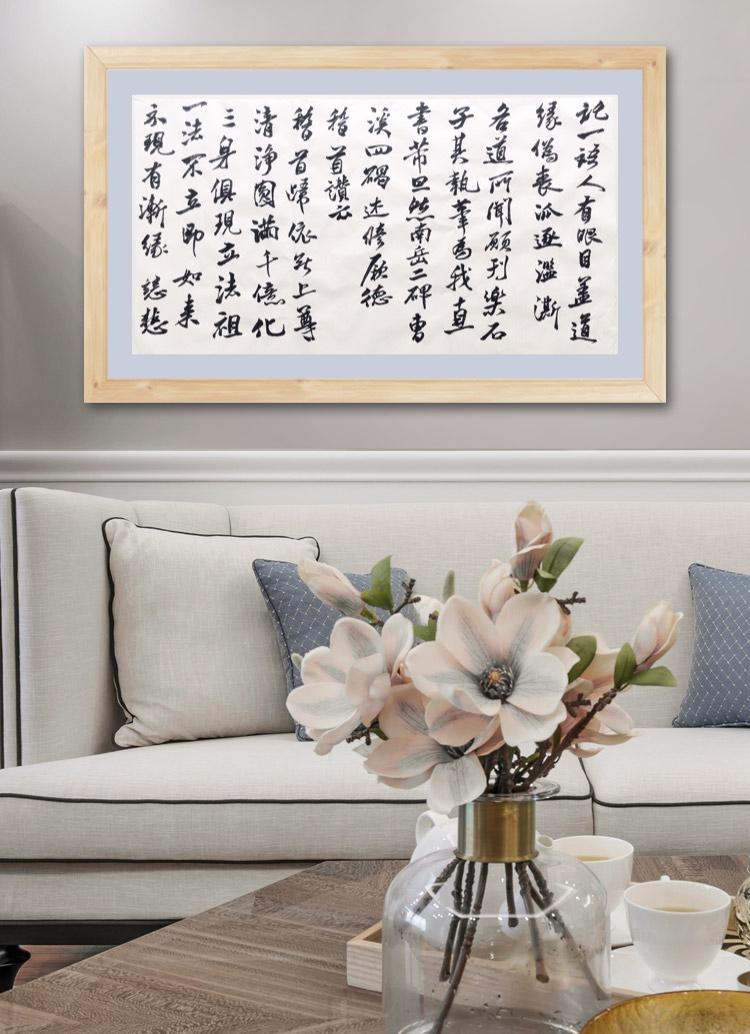 記一語人有眼目蓋道
緣偽喪派逐濫澌
名道所聞願刊樂石
子其執筆為我直
書芾旦然南岳二碑曹
溪四碣述臆厥德
稽首讚云
稽首歸依無上尊
清淨圓滿千億化
三身俱現立法祖
一法不立即如来
示現有漸緣慈悲